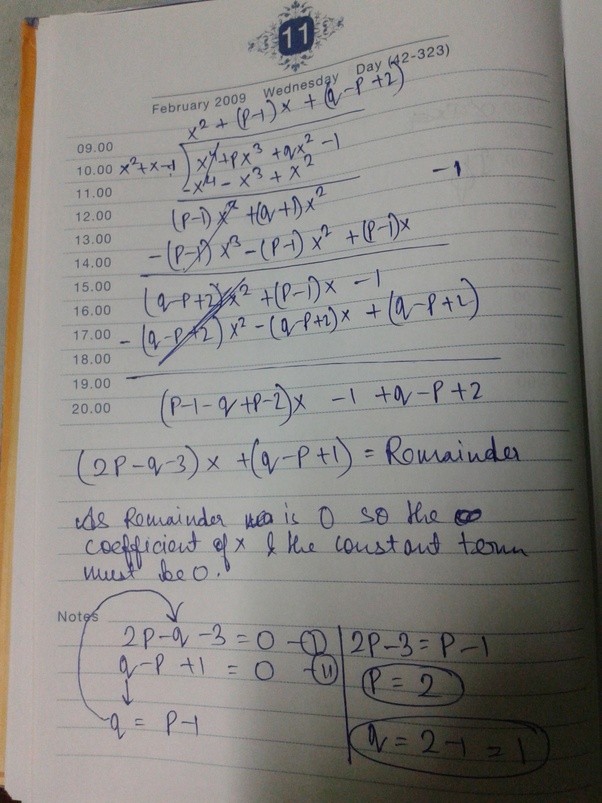 11
February 2009 Wednesday Day (42-323)
x² + (P-1)x + (q-P+2)
09.00
10.00 x²+x-1 ) x⁴+Px³ +qx² -1
11.00 x⁴ - x³ + x² -1
12.00 (P-1)x² +(q+1)x²
13.00
14.00 -(P-1)x³ -(P-1)x² +(P-1)x
15.00 (q-P+2)x² +(P-1)x -1
16.00
17.00 -(q-P+2)x² -(q-P+2)x +(q-P+2)
18.00
19.00
20.00 (P-1-q+P-2)x -1 +q-P+2
(2P-q-3)x +(q-P+1) = Remainder
As Remainder is 0 so the
coefficient of x & the constant term
must be 0.
Notes
2P-q-3=0 -(I)
q-P+1 = 0 -(II)
q = P-1
2P-3=P-1
P=2
q=2-1=1